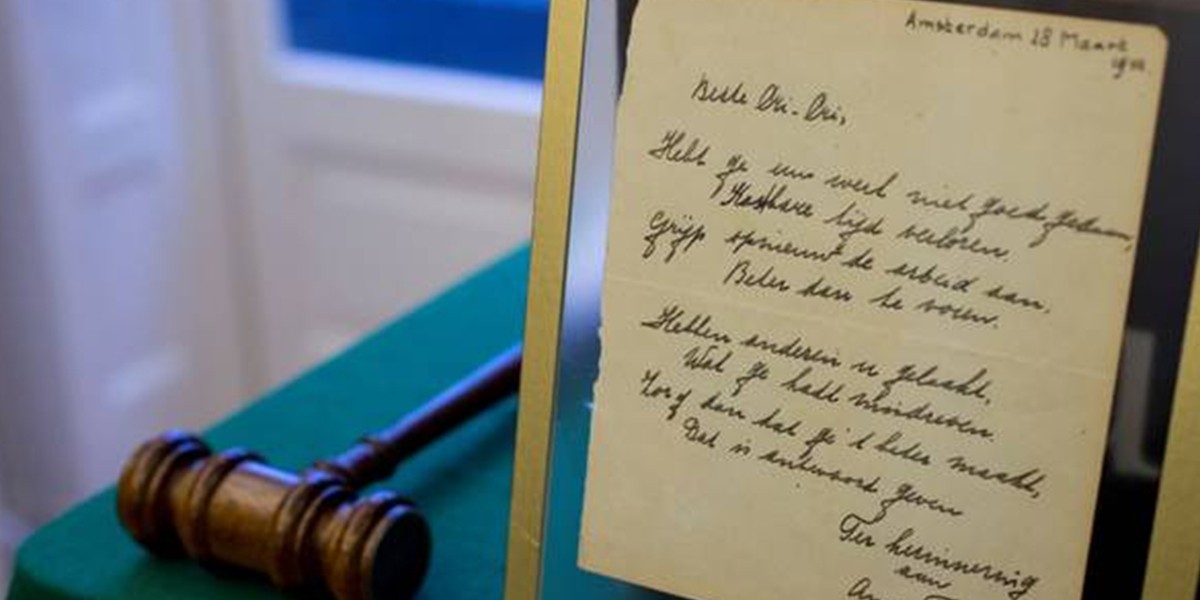 Amsterdam 18 Maart
Beste Cri-Cri,
Hebt ge uw werk niet goed gedaan,
Kostbare tijd verloren.
Grijp opnieuw de arbeid aan.
Beter dan te voren.
Hebben anderen u gelaakt,
Wat ge hadt misdreven.
Zorg dan dat ge 't beter maakt,
Dat is antwoord geven
Ter herinnering
aan